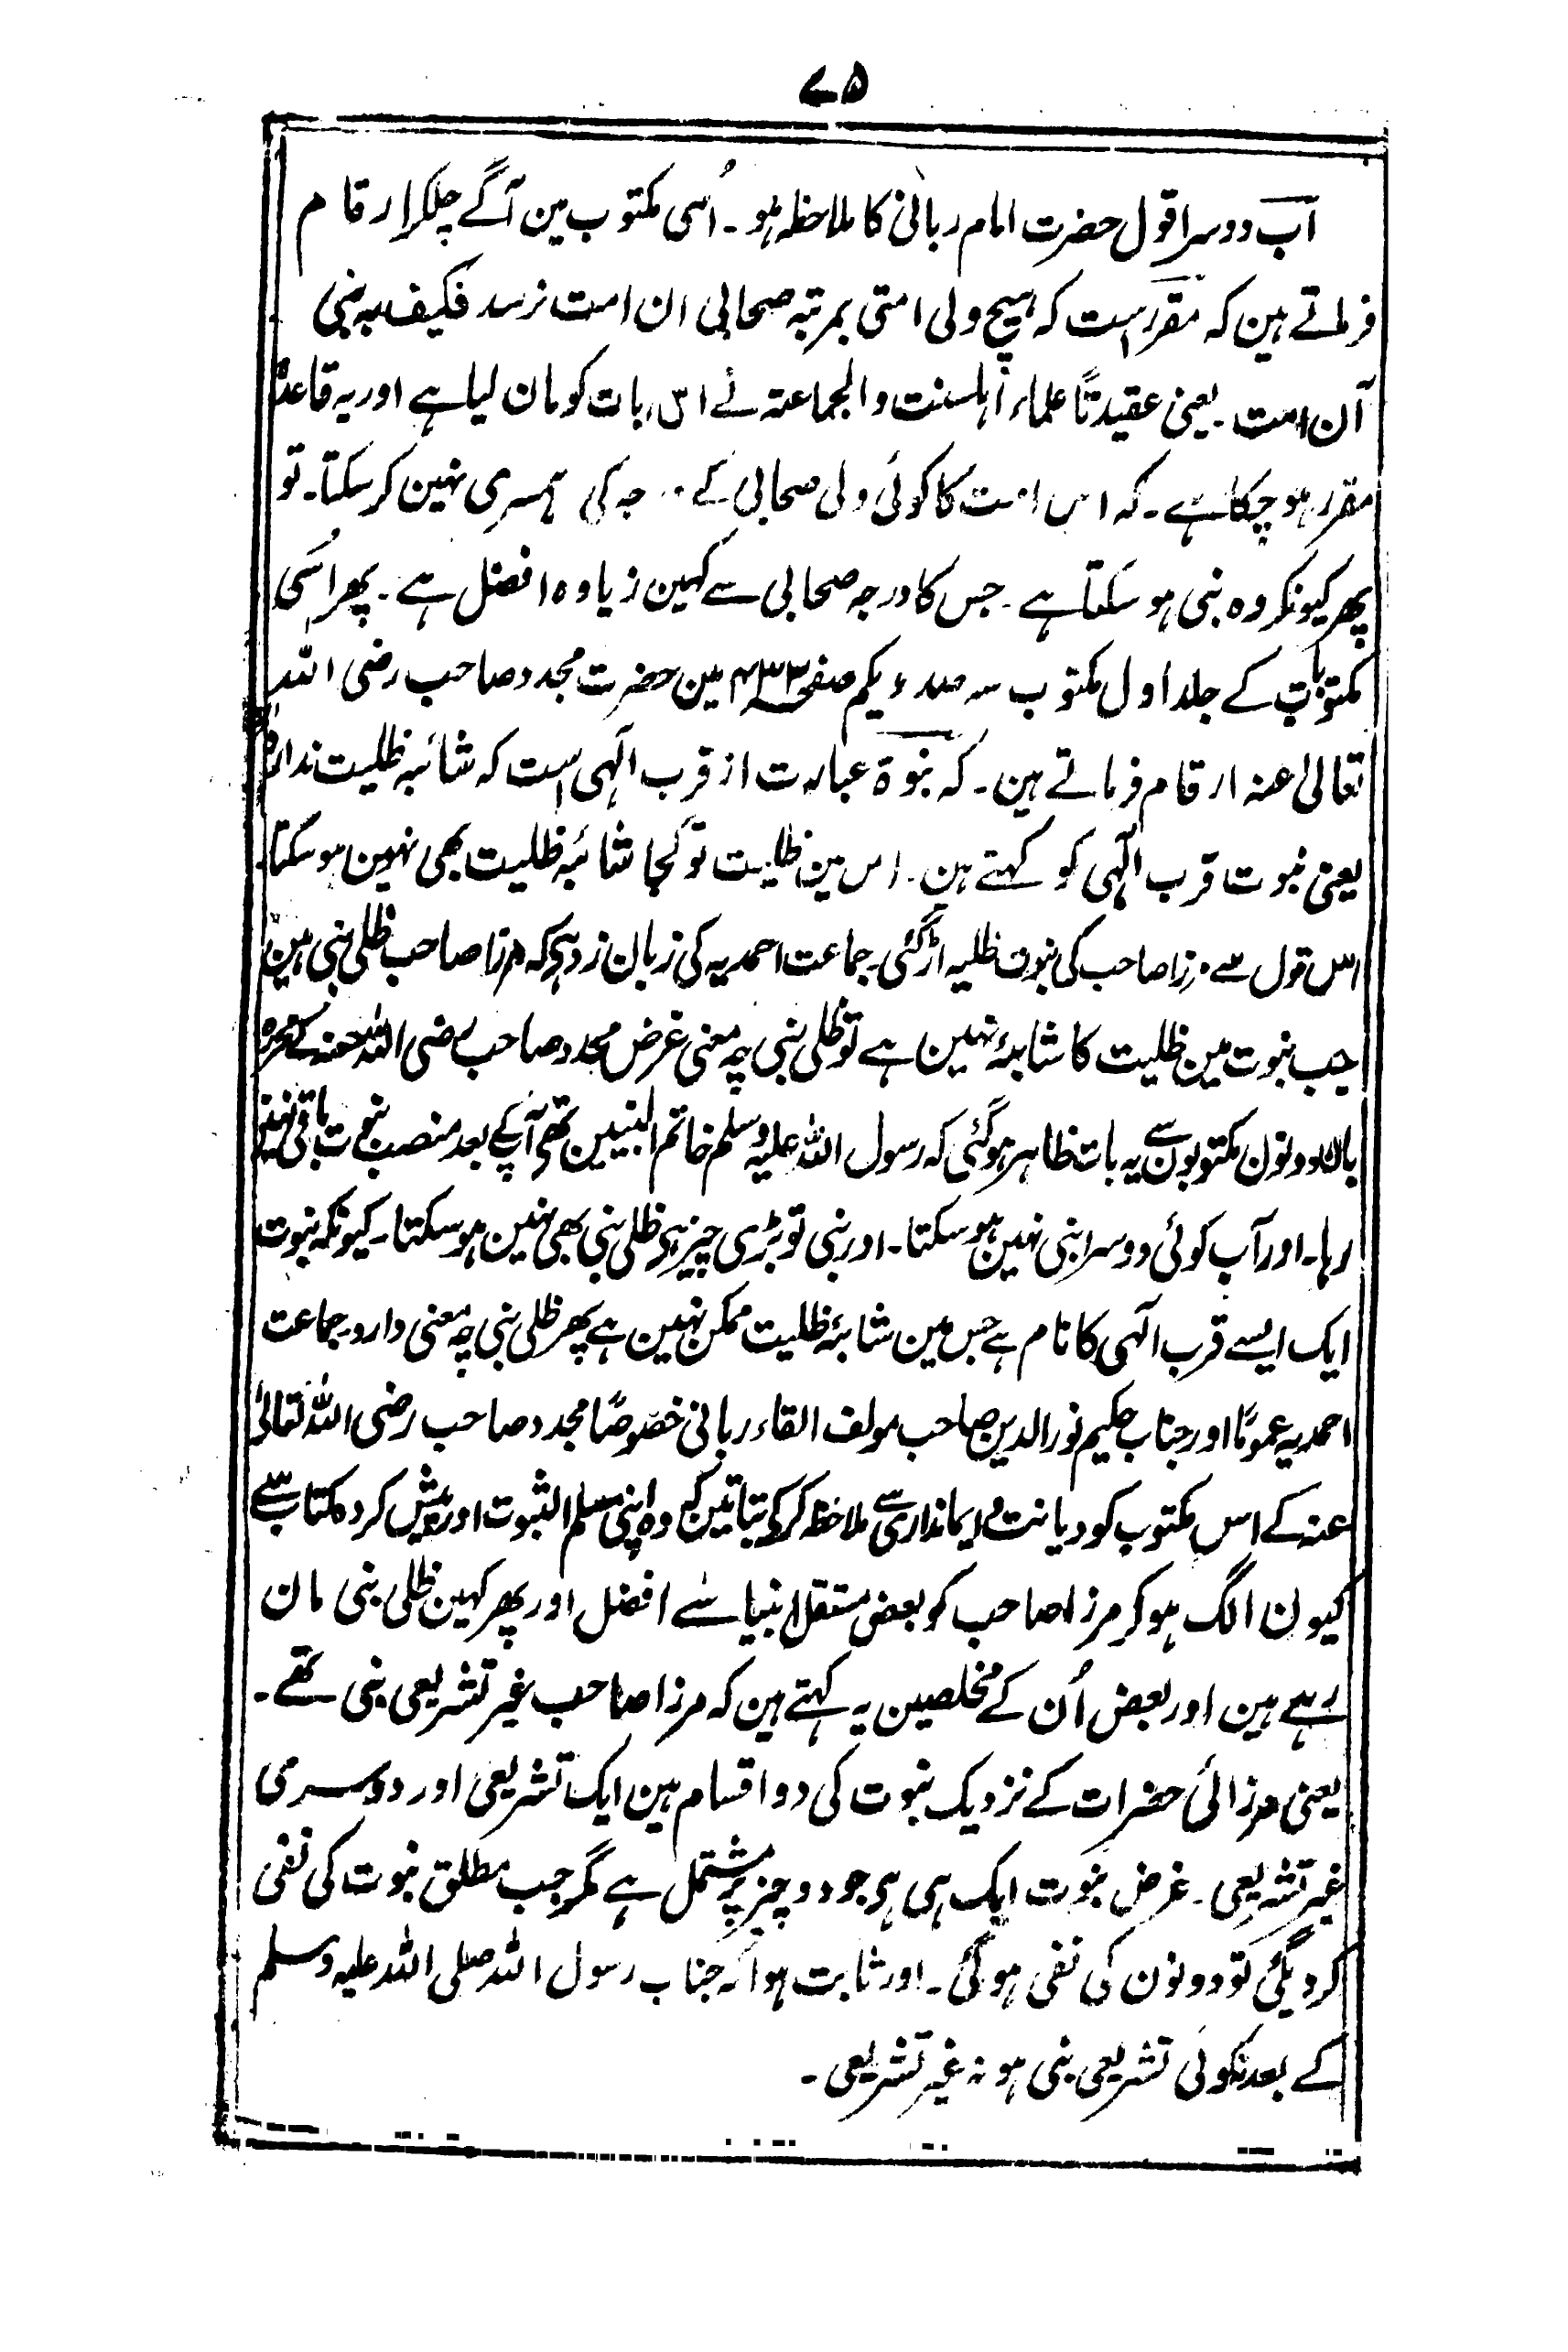 ۷۵
اَب دوسرا قول حضرت امام ربانی کا ملاحظہ ہو۔ اُسی مکتوب مین آگے چلکر ارقام
فرماتے ہین کہ مقرر است کہ ہیچ ولی امتی بمرتبہ صحابی ان امت نرسد فکیف بہ نبی
آن امت۔ یعنی عقیدتًا علماء اہلسنت والجماعۃ نے اس بات کو مان لیا ہے اور یہ قاعدہ
مقرر ہو چکا ہے۔ کہ اس امت کا کوئی ولی صحابی کے درجہ کی ہمسری نہین کر سکتا۔ تو
پھر کیونکر وہ نبی ہو سکتا ہے۔ جس کا درجہ صحابی سے کہین زیادہ افضل ہے۔ پھر اسی
مکتوبات کے جلد اول مکتوب سہ صد و یکم صفحہ ۴۳۳ مین حضرت مجدد صاحب رضی اللہ
تعالیٰ عنہ ارقام فرماتے ہین۔ کہ نبوۃ عبارت از قرب الٰہی است کہ شائبہ ظلیت ندارد
یعنی نبوت قرب الٰہی کو کہتے ہین۔ اس مین ظلیت تو کجا شائبہ ظلیت بھی نہین ہو سکتا۔
اس قول سے مرزا صاحب کی نبوت ظلیہ اڑ گئی۔ جماعت احمدیہ کی زبان زد ہے کہ مرزا صاحب ظلی نبی ہین
جب نبوت مین ظلیت کا شائبہ نہین ہے تو ظلی نبی چہ معنی غرض مجدد صاحب رضی اللہ عنہ کے محررہ
بالا دونون مکتوبون سے یہ بات ظاہر ہو گئی کہ رسول اللہ علیہ وسلم خاتم النبیین تھے آپ کے بعد منصب نبوت باقی نہین
رہا۔ اور آپ کوئی دوسرا نبی نہین ہو سکتا۔ اور نبی تو بڑی چیز ہے ظلی نبی بھی نہین ہو سکتا۔ کیونکہ نبوت
ایک ایسے قرب الٰہی کا نام ہے جس مین شائبہ ظلیت ممکن نہین ہے پھر ظلی نبی چہ معنی دارد۔ جماعت
احمدیہ عمومًا اور جناب حکیم نور الدین صاحب مولف القاء ربانی خصوصًا مجدد صاحب رضی اللہ تعالیٰ
عنہ کے اس مکتوب کو دیانت و ایمانداری سے ملاحظہ کر کے بتائین کہ وہ اپنی مسلم الثبوت اور پیش کردہ کتاب سے
کیون الگ ہو کر مرزا صاحب کو بعض مستقل انبیا سے افضل اور پھر کہین ظلی نبی مان
رہے ہین اور بعض اُن کے مخلصین یہ کہتے ہین کہ مرزا صاحب غیر تشریعی نبی تھے۔
یعنی مرزائی حضرات کے نزدیک نبوت کی دو اقسام ہین ایک تشریعی اور دوسری
غیر تشریعی۔ غرض نبوت ایک ہی ہے جو دو چیز پر مشتمل ہے مگر جب مطلق نبوت کی نفی
کر دیگئی تو دونون کی نفی ہو گئی۔ اور ثابت ہوا کہ جناب رسول اللہ صلی اللہ علیہ وسلم
کے بعد نکوئی تشریعی نبی ہو نہ غیر تشریعی۔